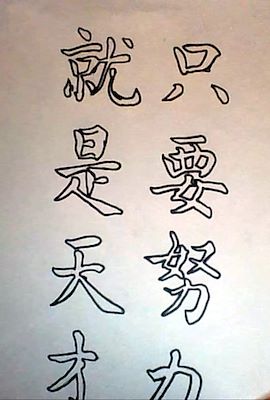 只要努力
就是天才